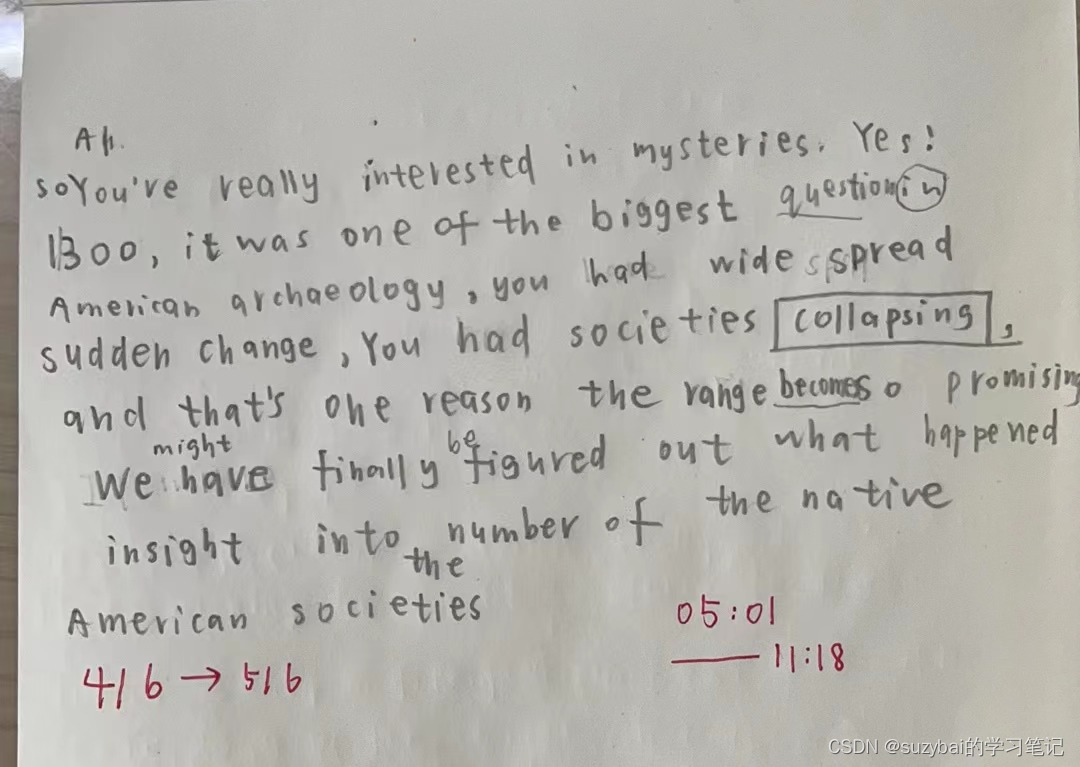 Ah.
so You've really interested in mysteries. Yes!
1300, it was one of the biggest question in
American archaeology, you had wide spread
sudden change, You had societies collapsing,
and that's one reason the range becomes o promising
might be
We have finally figured out what happened
insight into number of the native
the
American societies
05:01
416 → 516
—— 11:18
CSDN @suzybai的学习笔记